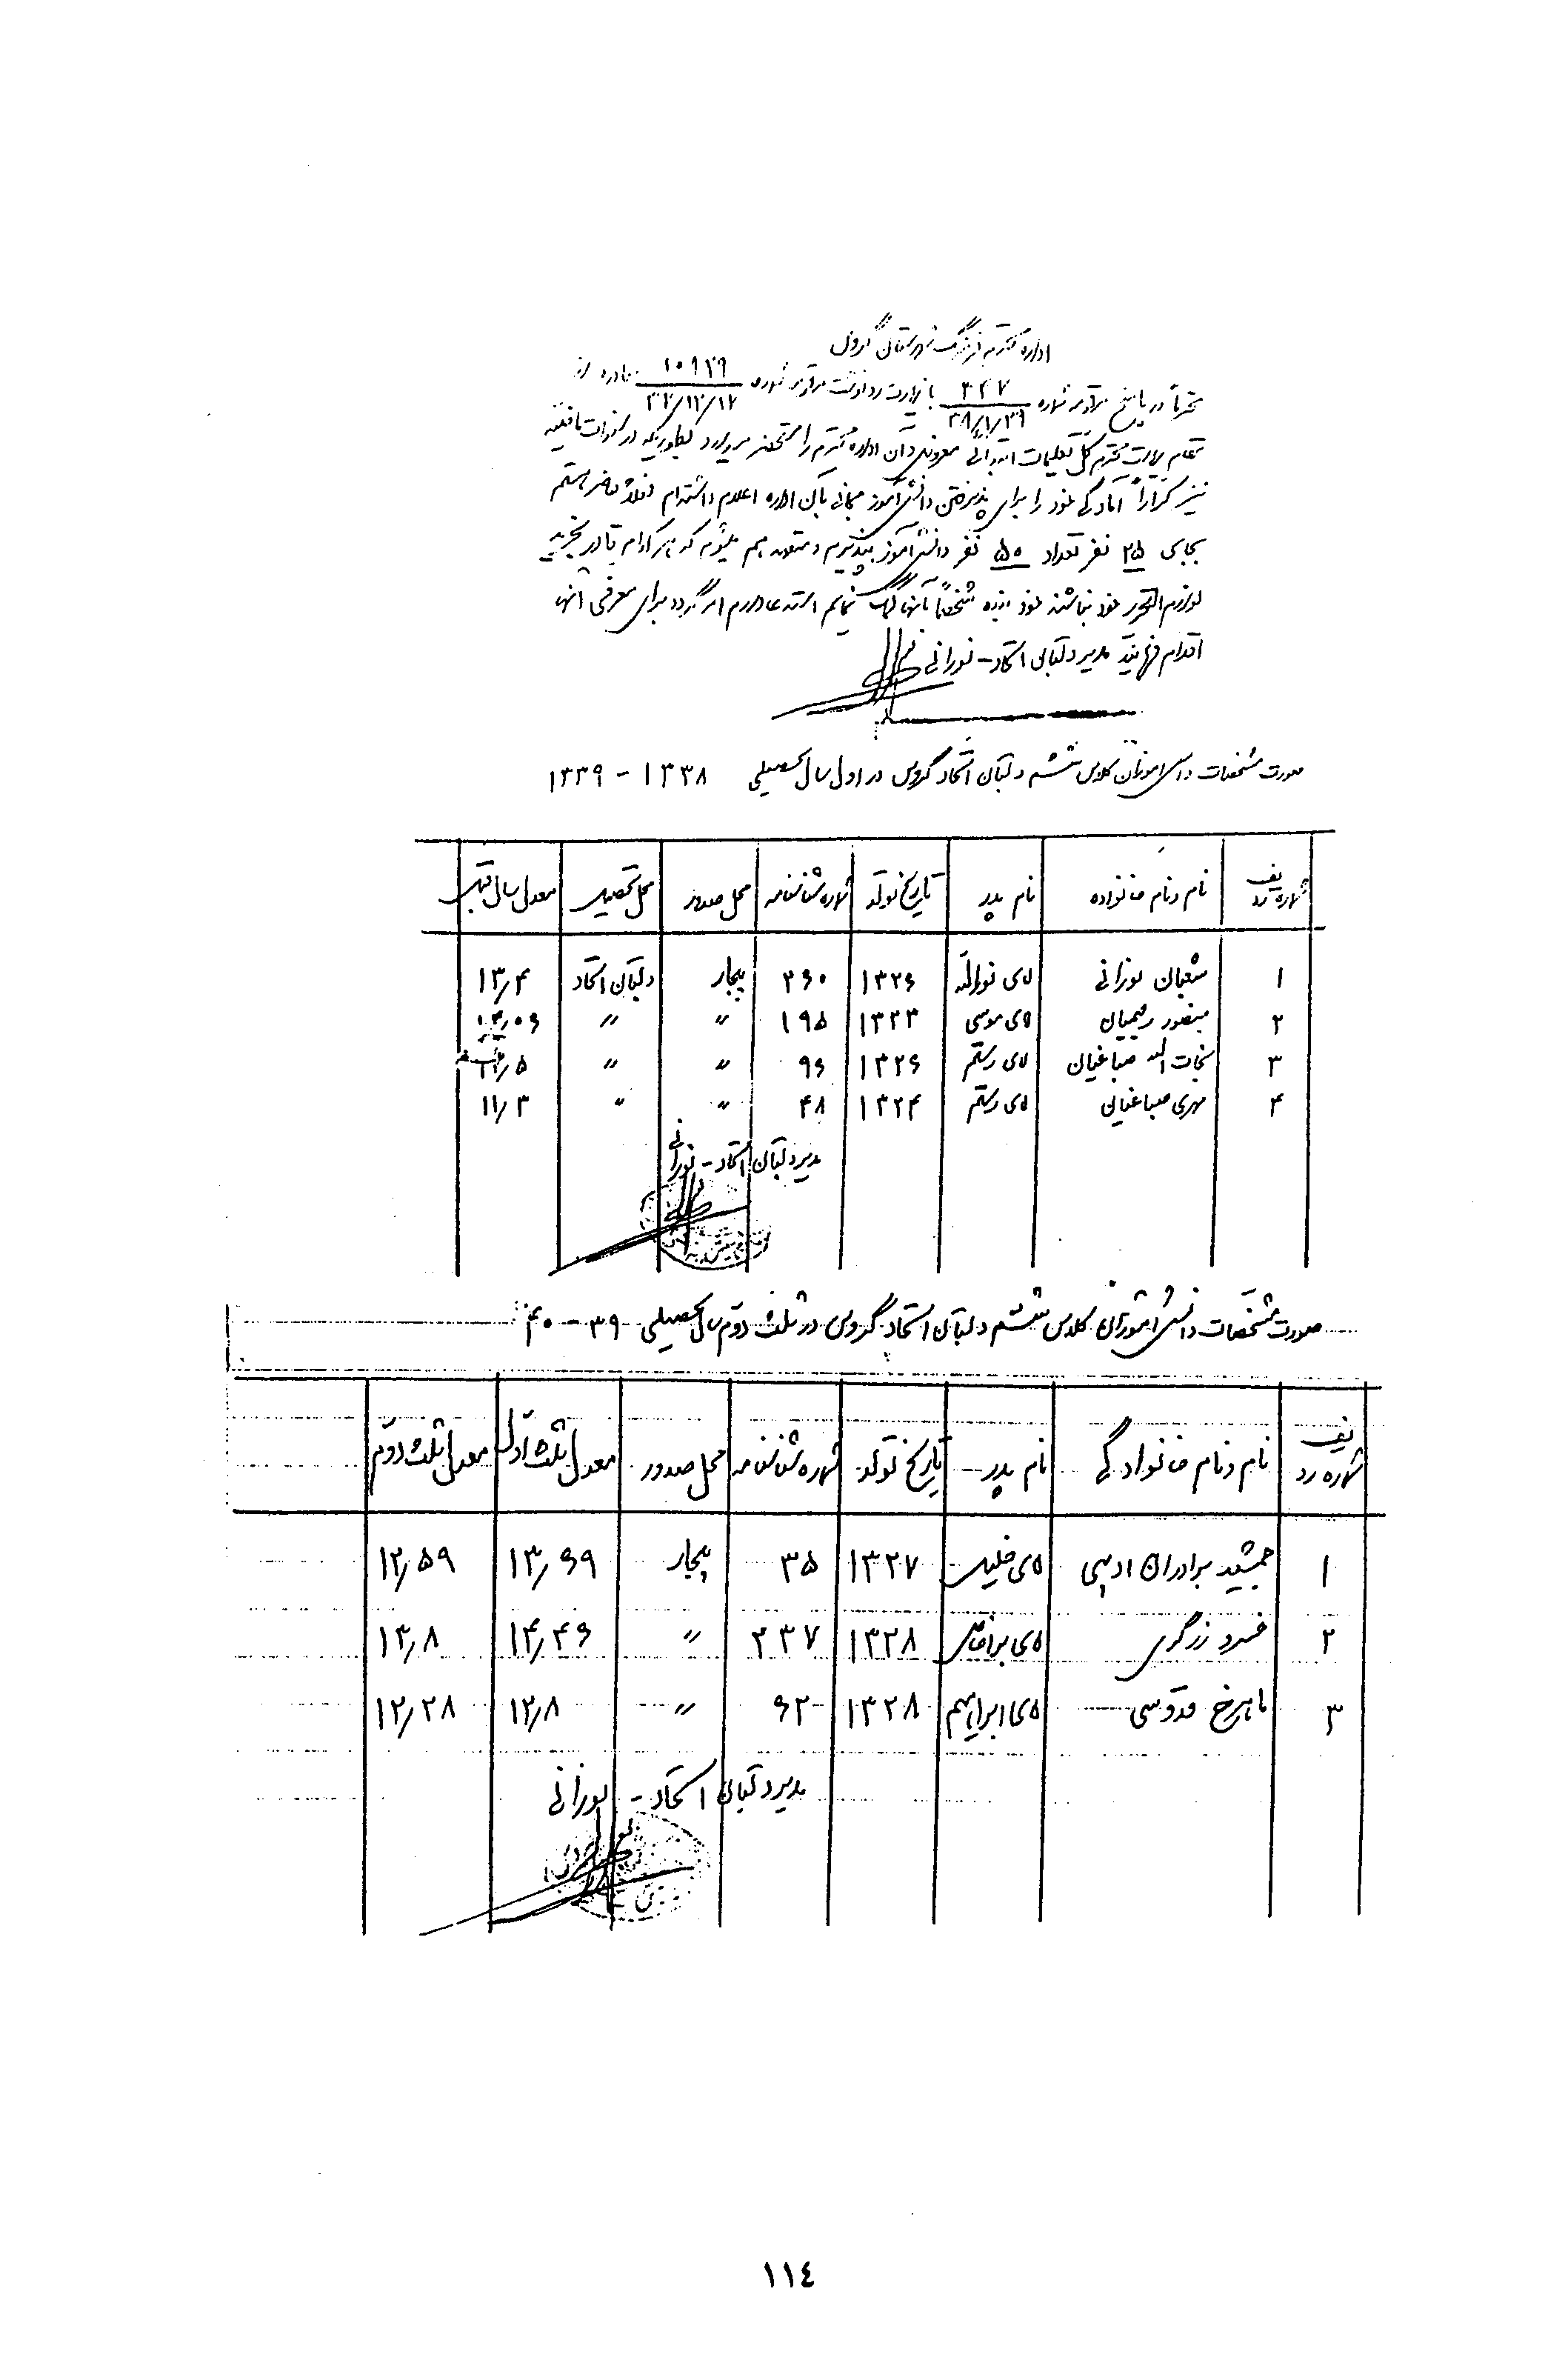 اداره محترم فرهنگ شهرستان گروس
محترماً در پاسخ مرقومه شماره ۳۴۷ ۳۸/۱/۳۱ با زیارت رونوشت مرقومه شماره ۱۰۹۲۹ ۳۷/۱۲/۱۷ صادره از
مقام ریاست محترم کل تعلیمات ابتدائی معروض و آن اداره محترم را مستحضر میدارد بطوریکه در
نیز کراراً آمادگی خود را برای پذیرفتن دانش آموز مجانی بآن اداره اعلام داشته‌ام فعلاً حاضر هستم
بجای ۲۵ نفر تعداد ۵۰ نفر دانش آموز بپذیرم و متعهد هم میشوم که هر کدام قادر بخرید
لوازم التحریر خود نباشند خود بنده شخصاً بآنها کمک نمایم استدعا دارم امر گردد برای معرفی آنها
اقدام فرمایند مدیر دبستان اتحاد - نورانی
صورت مشخصات دانش آموزان کلاس ششم دبستان اتحاد گروس در اول سال تحصیلی ۱۳۳۸ - ۱۳۳۹
شماره ردیف نام و نام خانواده نام پدر تاریخ تولد شماره شناسنامه محل صدور محل تحصیل معدل سال قبل
۱ شعبان نورانی آقای نورالله ۱۳۲۶ ۲۶۰ بیجار دبستان اتحاد ۱۳/۴
۲ منصور رحیمیان آقای موسی ۱۳۲۳ ۱۹۵ " "
۳ نجات اله صباغیان آقای رستم ۱۳۲۶ ۹۶ " "
۴ مهری صباغیان آقای رستم ۱۳۲۴ ۴۸ " " ۱۱/۳
مدیر دبستان اتحاد - نورانی
صورت مشخصات دانش آموزان کلاس ششم دبستان اتحاد گروس در ثلث دوم سال تحصیلی ۳۹ - ۴۰
شماره ردیف نام و نام خانوادگی نام پدر تاریخ تولد شماره شناسنامه محل صدور معدل ثلث اول معدل ثلث دوم
۱ جمشید برادران ادبی آقای خلیل ۱۳۲۷ ۳۵ بیجار ۱۳/۶۹ ۱۲/۵۹
۲ خسرو زرگری آقای ۱۳۲۸ ۲۳۷ " ۱۴/۴۶ ۱۳/۸
۳ ماهرخ قدوسی آقای ابراهیم ۱۳۲۸ ۶۲ " ۱۲/۸ ۱۲/۲۸
مدیر دبستان اتحاد - نورانی
١١٤